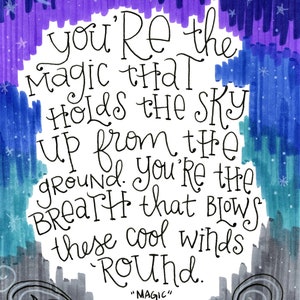 you're the
magic that
holds the sky
up from the
ground. you're the
breath that blows
these cool winds
'round.
"magic"